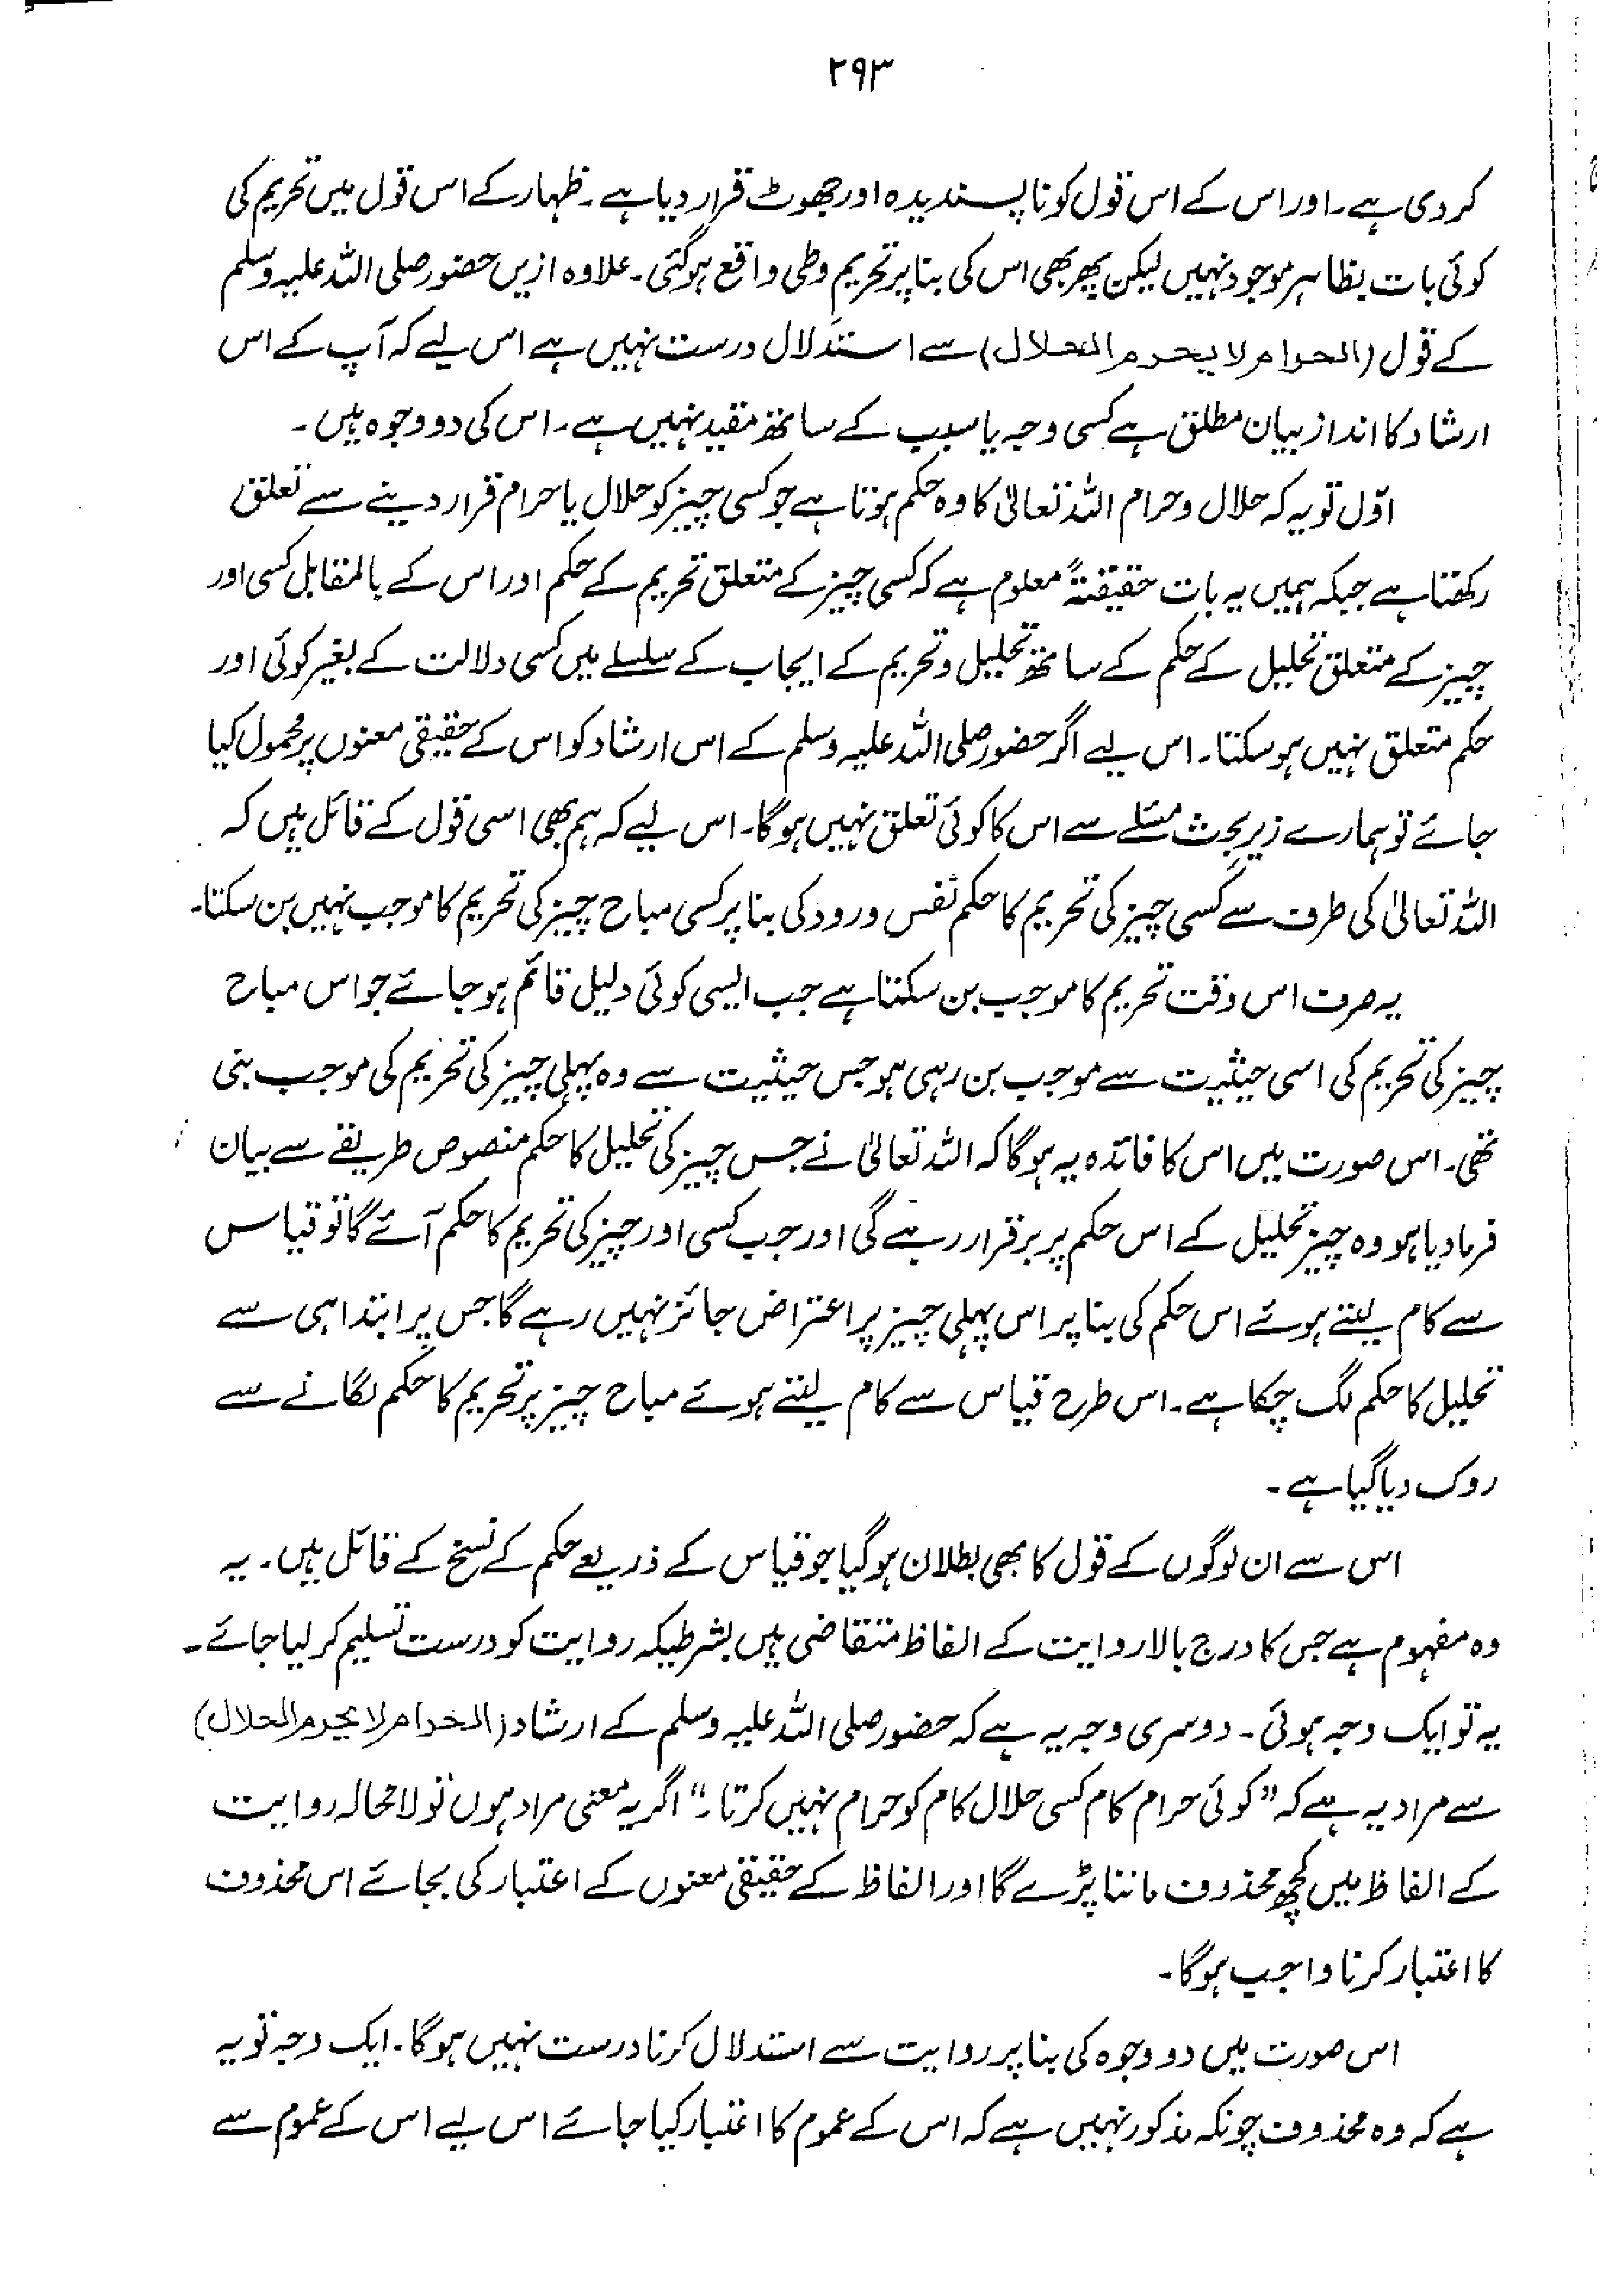 ۲۹۳
کردی ہے۔ اور اس کے اس قول کو ناپسندیدہ اور جھوٹ قرار دیا ہے۔ ظہار کے اس قول میں تحریم کی
کوئی بات بظاہر موجود نہیں لیکن پھر بھی اس کی بنا پر تحریمِ وطی واقع ہوگئی۔ علاوہ ازیں حضور صلی اللہ علیہ وسلم
کے قول (الحرام لا یحرم الحلال) سے استدلال درست نہیں ہے اس لیے کہ آپ کے اس
ارشاد کا انداز بیان مطلق ہے کسی وجہ یا سبب کے ساتھ مقید نہیں ہے۔ اس کی دو وجوہ ہیں۔
اوّل تو یہ کہ حلال و حرام اللہ تعالیٰ کا وہ حکم ہوتا ہے جو کسی چیز کو حلال یا حرام قرار دینے سے تعلق
رکھتا ہے جبکہ ہمیں یہ بات حقیقتہً معلوم ہے کہ کسی چیز کے متعلق تحریم کے حکم اور اس کے بالمقابل کسی اور
چیز کے متعلق تحلیل کے حکم کے ساتھ تحلیل و تحریم کے ایجاب کے سلسلے میں کسی دلالت کے بغیر کوئی اور
حکم متعلق نہیں ہو سکتا۔ اس لیے اگر حضور صلی اللہ علیہ وسلم کے اس ارشاد کو اس کے حقیقی معنوں پر محمول کیا
جائے تو ہمارے زیرِ بحث مسئلے سے اس کا کوئی تعلق نہیں ہوگا۔ اس لیے کہ ہم بھی اسی قول کے قائل ہیں کہ
اللہ تعالیٰ کی طرف سے کسی چیز کی تحریم کا حکم نفس ورود کی بنا پر کسی مباح چیز کی تحریم کا موجب نہیں بن سکتا۔
یہ صرف اس وقت تحریم کا موجب بن سکتا ہے جب ایسی کوئی دلیل قائم ہو جائے جو اس مباح
چیز کی تحریم کی اسی حیثیت سے موجب بن رہی ہو جس حیثیت سے وہ پہلی چیز کی تحریم کی موجب بنی
تھی۔ اس صورت میں اس کا فائدہ یہ ہوگا کہ اللہ تعالیٰ نے جس چیز کی تحلیل کا حکم منصوص طریقے سے بیان
فرمادیا ہو وہ چیز تحلیل کے اس حکم پر برقرار رہے گی اور جب کسی اور چیز کی تحریم کا حکم آئے گا تو قیاس
سے کام لیتے ہوئے اس حکم کی بنا پر اس پہلی چیز پر اعتراض جائز نہیں رہے گا جس پر ابتدا ہی سے
تحلیل کا حکم لگ چکا ہے۔ اس طرح قیاس سے کام لیتے ہوئے مباح چیز پر تحریم کا حکم لگانے سے
روک دیا گیا ہے۔
اس سے ان لوگوں کے قول کا بھی بطلان ہوگیا جو قیاس کے ذریعے حکم کے نسخ کے قائل ہیں۔ یہ
وہ مفہوم ہے جس کا درج بالا روایت کے الفاظ متقاضی ہیں بشرطیکہ روایت کو درست تسلیم کر لیا جائے۔
یہ تو ایک وجہ ہوئی۔ دوسری وجہ یہ ہے کہ حضور صلی اللہ علیہ وسلم کے ارشاد (الحرام لا یحرم الحلال)
سے مراد یہ ہے کہ "کوئی حرام کام کسی حلال کام کو حرام نہیں کرتا۔" اگر یہ معنی مراد ہوں تو لامحالہ روایت
کے الفاظ میں کچھ محذوف ماننا پڑے گا اور الفاظ کے حقیقی معنوں کے اعتبار کی بجائے اس محذوف
کا اعتبار کرنا واجب ہوگا۔
اس صورت میں دو وجوہ کی بنا پر روایت سے استدلال کرنا درست نہیں ہوگا۔ ایک وجہ تو یہ
ہے کہ وہ محذوف چونکہ مذکور نہیں ہے کہ اس کے عموم کا اعتبار کیا جائے اس لیے اس کے عموم سے